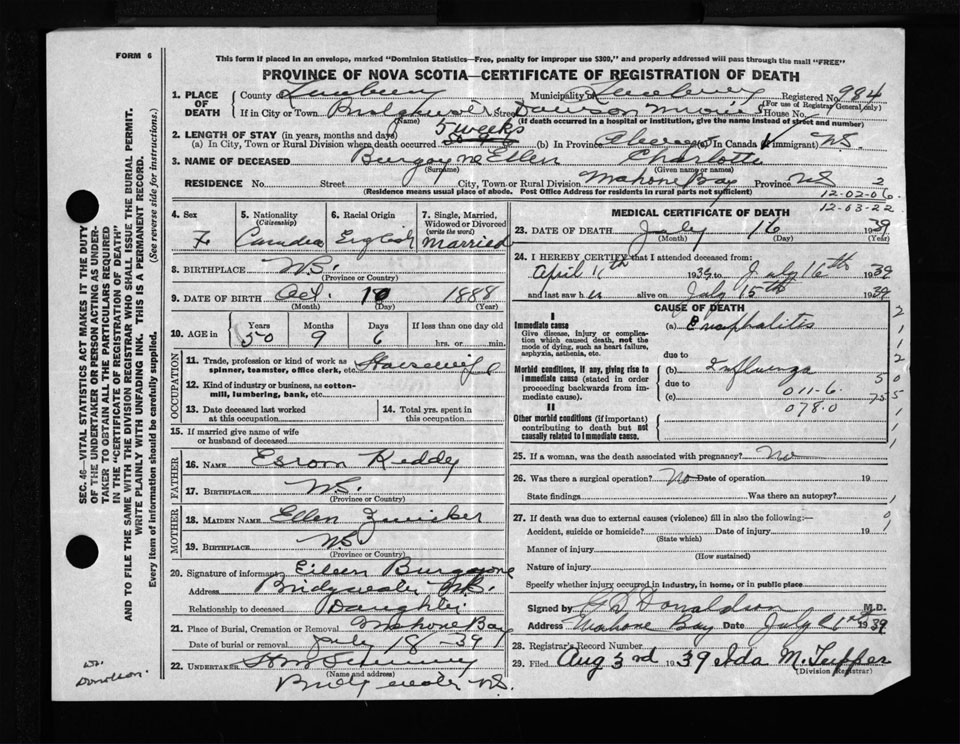 FORM 6
This form if placed in an envelope, marked "Dominion Statistics—Free, penalty for improper use $300," and properly addressed will pass through the mail "FREE"
PROVINCE OF NOVA SCOTIA—CERTIFICATE OF REGISTRATION OF DEATH
1. PLACE OF DEATH { County of Lunenburg Municipality of Lunenburg Registered No. 984
(For use of Registrar General only)
If in City or Town Bridgewater Street Dawson House No.
(Name) (If death occurred in a hospital or institution, give the name instead of street and number)
2. LENGTH OF STAY (in years, months and days)
(a) In City, Town or Rural Division where death occurred 5 weeks (b) In Province Always (c) In Canada (if immigrant) NS.
3. NAME OF DECEASED Burgoyne Ellen Charlotte
(Surname) (Given name or names)
RESIDENCE No. Street City, Town or Rural Division Mahone Bay Province NS 2
(Residence means usual place of abode. Post Office Address for residents in rural parts not sufficient)
12-02-06
12-03-22
4. Sex F
5. Nationality (Citizenship) Canada
6. Racial Origin English
7. Single, Married, Widowed or Divorced (write the word) Married
8. BIRTHPLACE N.S.
(Province or Country)
9. DATE OF BIRTH Oct. 10 1888
(Month) (Day) (Year)
10. AGE in { Years 50 Months 9 Days 6 If less than one day old
hrs. or min.
OCCUPATION
11. Trade, profession or kind of work as spinner, teamster, office clerk, etc. Housewife
12. Kind of industry or business, as cotton-mill, lumbering, bank, etc.
13. Date deceased last worked at this occupation
14. Total yrs. spent in this occupation
15. If married give name of wife or husband of deceased
FATHER
16. NAME Esrom Keddy
17. BIRTHPLACE N.S.
(Province or Country)
MOTHER
18. MAIDEN NAME Ellen Zwicker
19. BIRTHPLACE N.S.
(Province or Country)
20. Signature of informant Eileen Burgoyne
Address Bridgewater N.S.
Relationship to deceased Daughter
21. Place of Burial, Cremation or Removal Mahone Bay
Date of burial or removal July 18-39
22. UNDERTAKER
(Name and address)
Bridgewater N.S.
MEDICAL CERTIFICATE OF DEATH
23. DATE OF DEATH July 16 1939
(Month) (Day) (Year)
24. I HEREBY CERTIFY that I attended deceased from:
April 11th 1939 to July 16th 1939
and last saw her alive on July 15th 1939
CAUSE OF DEATH
I
Immediate cause
Give disease, injury or complication which caused death, not the mode of dying, such as heart failure, asphyxia, asthenia, etc.
(a) Encephalitis
due to
Morbid conditions, if any, giving rise to immediate cause (stated in order proceeding backwards from immediate cause).
(b) Influenza
due to
(c) 011-6.
078.0
II
Other morbid conditions (if important) contributing to death but not causally related to immediate cause.
25. If a woman, was the death associated with pregnancy? No
26. Was there a surgical operation? No Date of operation 19
State findings Was there an autopsy?
27. If death was due to external causes (violence) fill in also the following:—
Accident, suicide or homicide? Date of injury 19
(State which)
Manner of injury
(How sustained)
Nature of injury
Specify whether injury occurred in industry, in home, or in public place
Signed by G D Donaldson M.D.
Address Mahone Bay Date July 1939
28. Registrar's Record Number
29. Filed Aug 3rd 1939 Ida M. Tupper
(Division Registrar)
SEC. 46—VITAL STATISTICS ACT MAKES IT THE DUTY OF THE UNDERTAKER OR PERSON ACTING AS UNDERTAKER TO OBTAIN ALL THE PARTICULARS REQUIRED IN THE "CERTIFICATE OF REGISTRATION OF DEATH" AND TO FILE THE SAME WITH THE DIVISION REGISTRAR WHO SHALL ISSUE THE BURIAL PERMIT.
WRITE PLAINLY WITH UNFADING INK. THIS IS A PERMANENT RECORD.
Every item of information should be carefully supplied. (See reverse side for instructions.)
Donaldson.